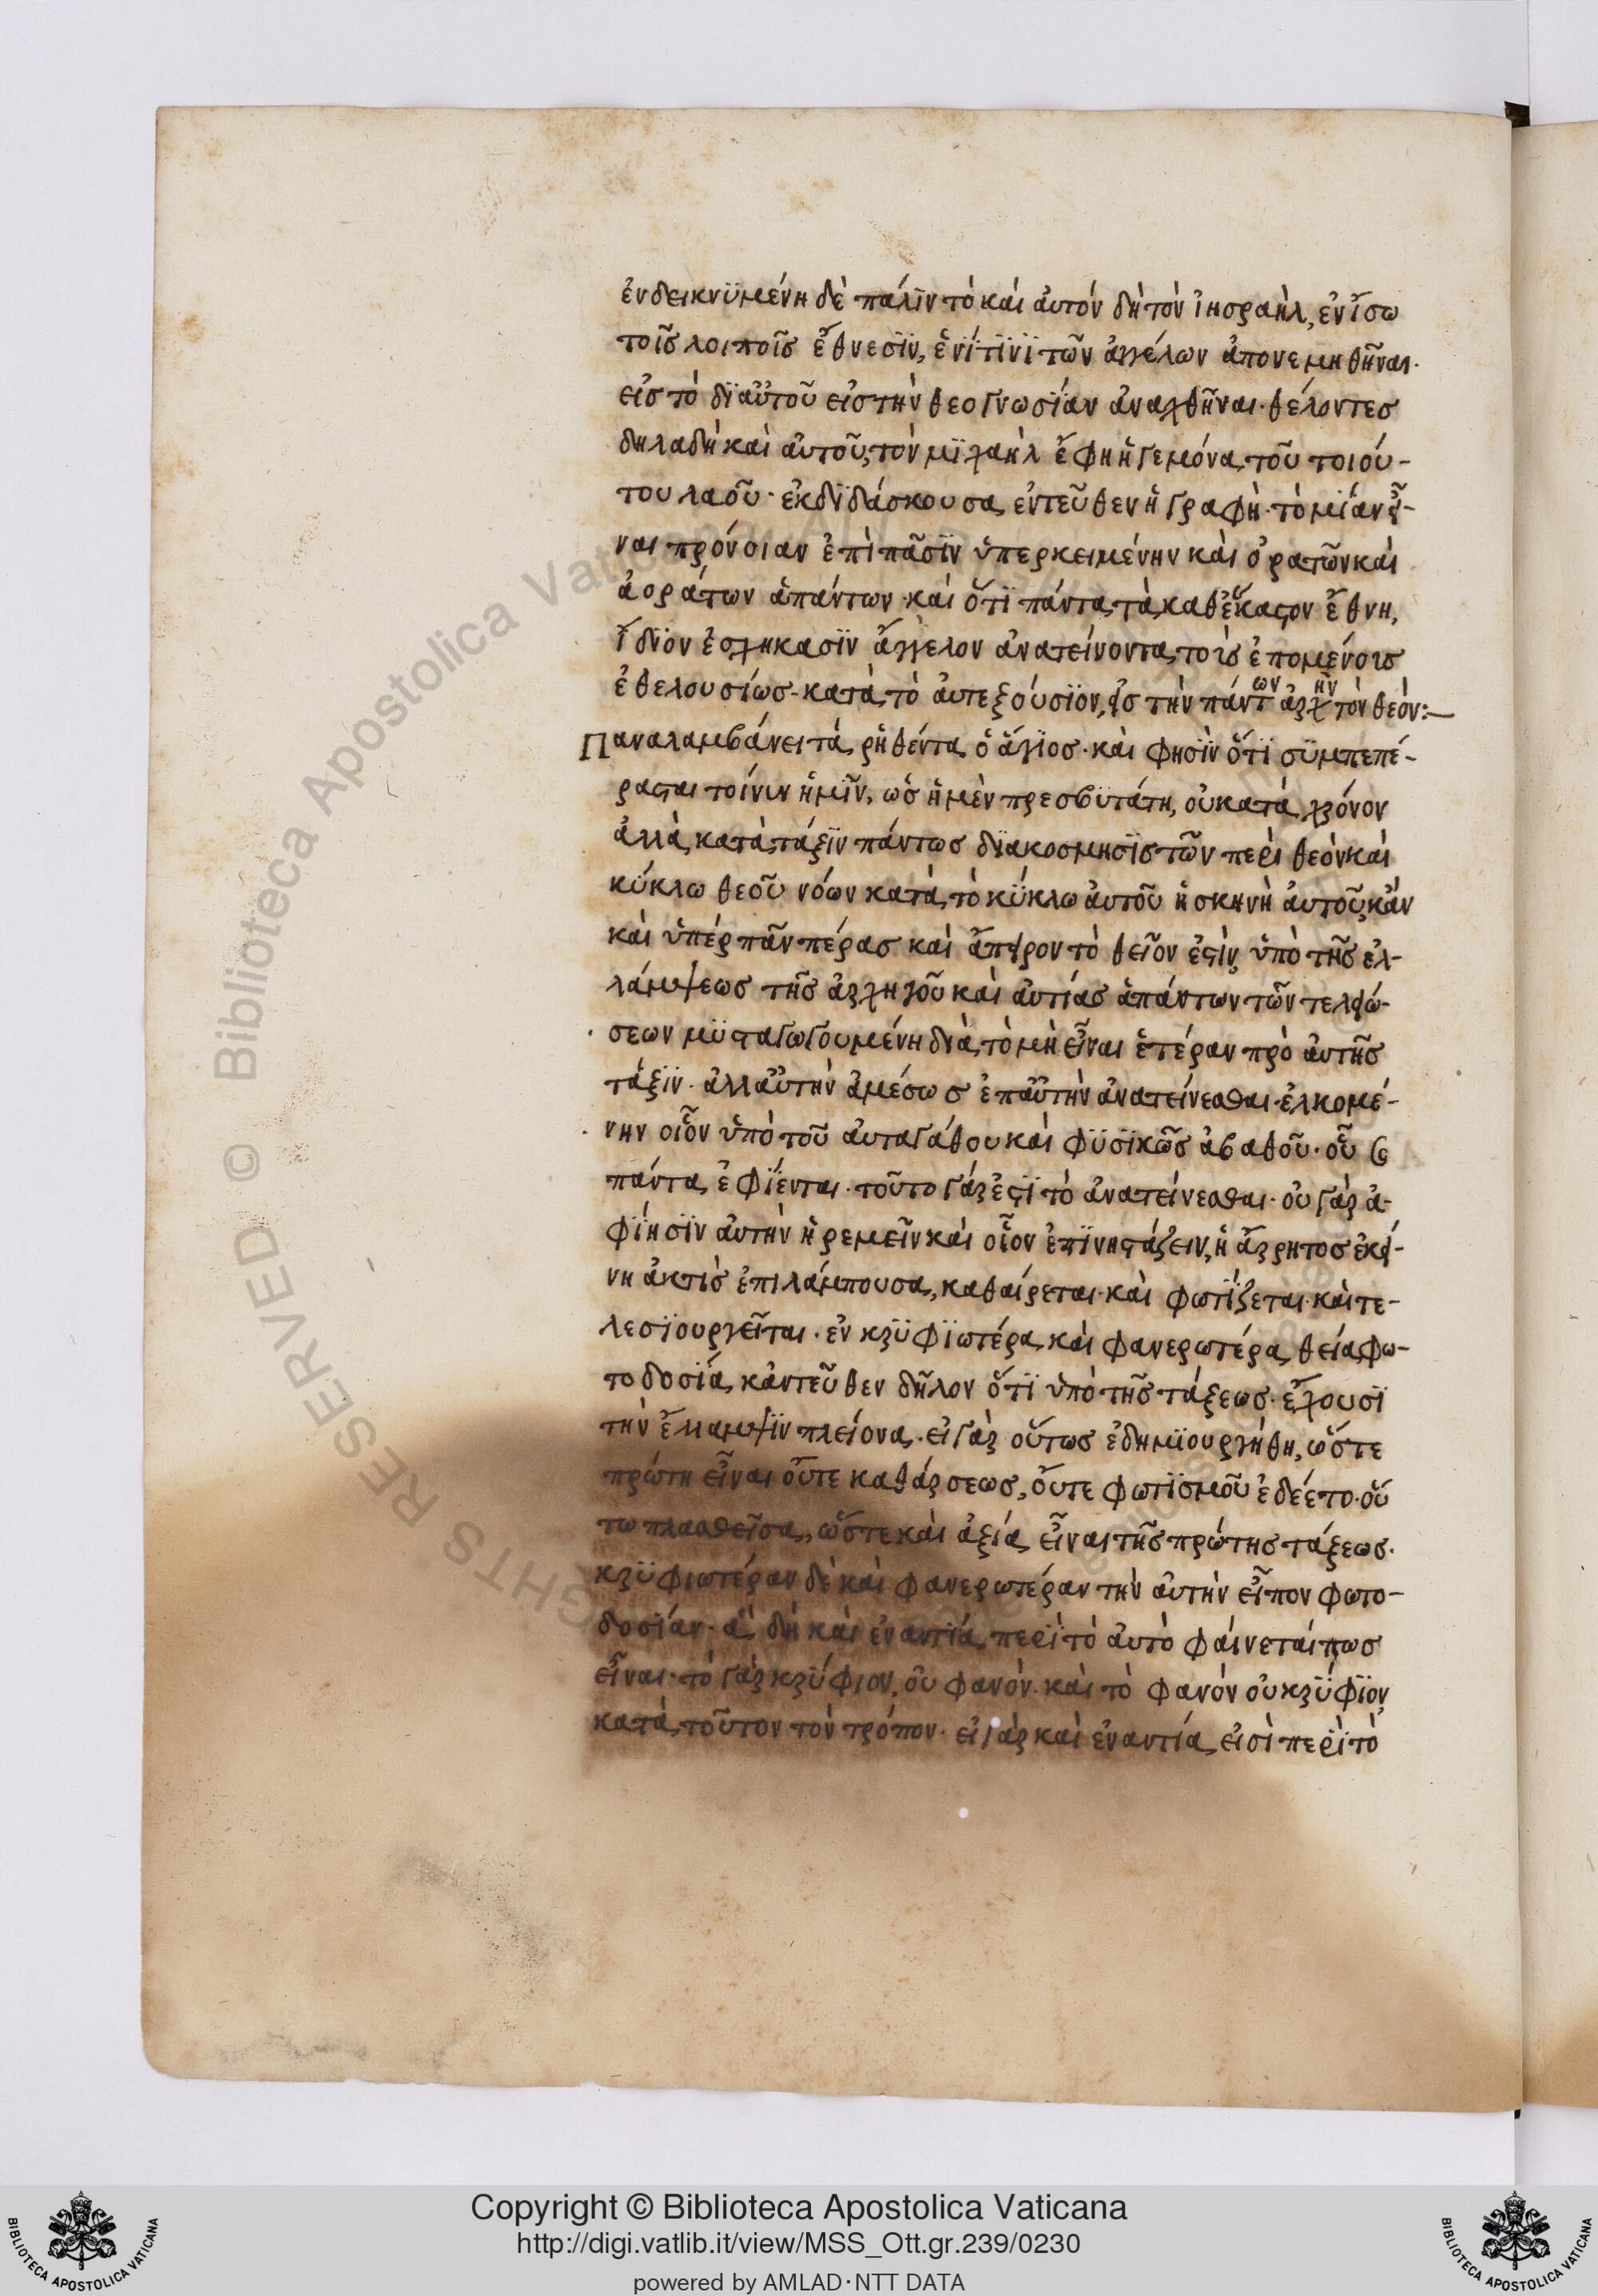 ἐνδεικνϋμένη δὲ πάλϊν τὸ καὶ ἀυτόν δὴ τὸν ἰησραὴλ, ἐν ἴσω
τοῖς λοιποῖς ἔθνεσϊν, ἑνί τϊνϊ τῶν ἀγγέλων ἀπονεμηθῆναι·
εἰς τὸ δϊαὐτοῦ εἰς τὴν θεογνωσΐαν ἀναχθῆναι· θέλοντες
δηλαδὴ καὶ αὐτοῦ, τὸν μϊχαὴλ ἔφη ἡγεμόνα τοῦ τοιού-
του λαοῦ· ἐκδϊδάσκουσα ἐντεῦθεν ἡ γραφὴ· τὸ μΐαν εἶ-
ναι πρόνοιαν ἐπὶ πᾶσϊν ὑπερκειμένην καὶ ὁρατῶν καὶ
ἀοράτων ἁπάντων· καὶ ὅτϊ πάντα τὰ καθ' ἕκαστον ἔθνη,
ἴδϊον ἐσχήκασϊν ἄγγελον ἀνατείνοντα τοὶς ἑπομένοις
ἐθελουσίως· κατὰ τὸ ἀυτεξούσϊον, εἰς τὴν πάντων ἀρχὴν τὸν θεόν:—
Παναλαμβάνει τὰ ῥηθέντα ὁ ἅγϊος· καὶ φησὶν ὅτϊ συμπεπέ-
ρασται τοίνυν ἡμῖν, ὡς ἡ μὲν πρεσβϋτάτη, οὐ κατὰ χρόνον
ἀλλὰ κατὰ τάξϊν πάντως δϊακοσμησϊς τῶν περὶ θεὸν καὶ
κύκλω θεοῦ νόων κατὰ τὸ κύκλω ἀυτοῦ ἡ σκηνὴ ἀυτοῦ, κἂν
καὶ ὑπὲρ πᾶν πέρας καὶ ἄπειρον τὸ θεῖον ἐστὶν, ὑπὸ τῆς ἐλ-
λάμψεως τῆς ἀρχηγοῦ καὶ ἀιτίας ἁπάντων τῶν τελειώ-
σεων μϋσταγωγουμένη δϊὰ τὸ μὴ εἶναι ἑτέραν πρὸ ἀυτῆς
τάξϊν· ἀλλαὐτὴν ἀμέσως ἐπαὐτὴν ἀνατείνεσθαι· ἑλκομέ-
νην οἷον ὑπὸ τοῦ ἀυταγάθου καὶ φϋσϊκῶς ἀγαθοῦ· οὗ καὶ
πάντα ἐφΐενται· τοῦτο γάρ ἐστϊ τὸ ἀνατείνεσθαι· οὐ γὰρ ἀ-
φΐησϊν ἀυτὴν ἠρεμεῖν καὶ οἷον ἐπϊνηστάζειν, ἡ ἄρρητος ἐκεί-
νη ἀκτὶς ἐπιλάμπουσα, καθαίρεται· καὶ φωτΐζεται· καὶ τε-
λεσϊουργεῖται· ἐν κρϋφϊωτέρα καὶ φανερωτέρα θεία φω-
τοδοσΐα κἀντεῦθεν δῆλον ὅτϊ ὑπὸ τῆς τάξεως· ἔχουσϊ
τὴν ἔλλαμψϊν πλείονα· εἰ γὰρ οὕτως ἐδημϊουργήθη, ὥστε
πρώτη εἶναι οὔτε καθάρσεως, οὔτε φωτϊσμοῦ ἐδέετο· οὕ
τω πλασθεῖσα, ὥστε καὶ ἀξία εἶναι τῆς πρώτης τάξεως·
κρϋφιωτέραν δὲ καὶ φανερωτέραν τὴν ἀυτὴν εἶπον φωτο-
δοσΐαν· ἃ δὴ καὶ ἐναντΐα περὶ τὸ ἀυτὸ φάινεταί πως
εἶναι· τὸ γὰρ κρΰφιον, οὐ φανὸν· καὶ τὸ φανὸν οὐ κρΰφϊον
κατὰ τοῦτον τὸν τρόπον· εἰ γὰρ καὶ ἐναντία εἰσὶ περὶ τὸ
Copyright © Biblioteca Apostolica Vaticana
http://digi.vatlib.it/view/MSS_Ott.gr.239/0230
powered by AMLAD·NTT DATA
BIBLIOTECA APOSTOLICA VATICANA
BIBLIOTECA APOSTOLICA VATICANA